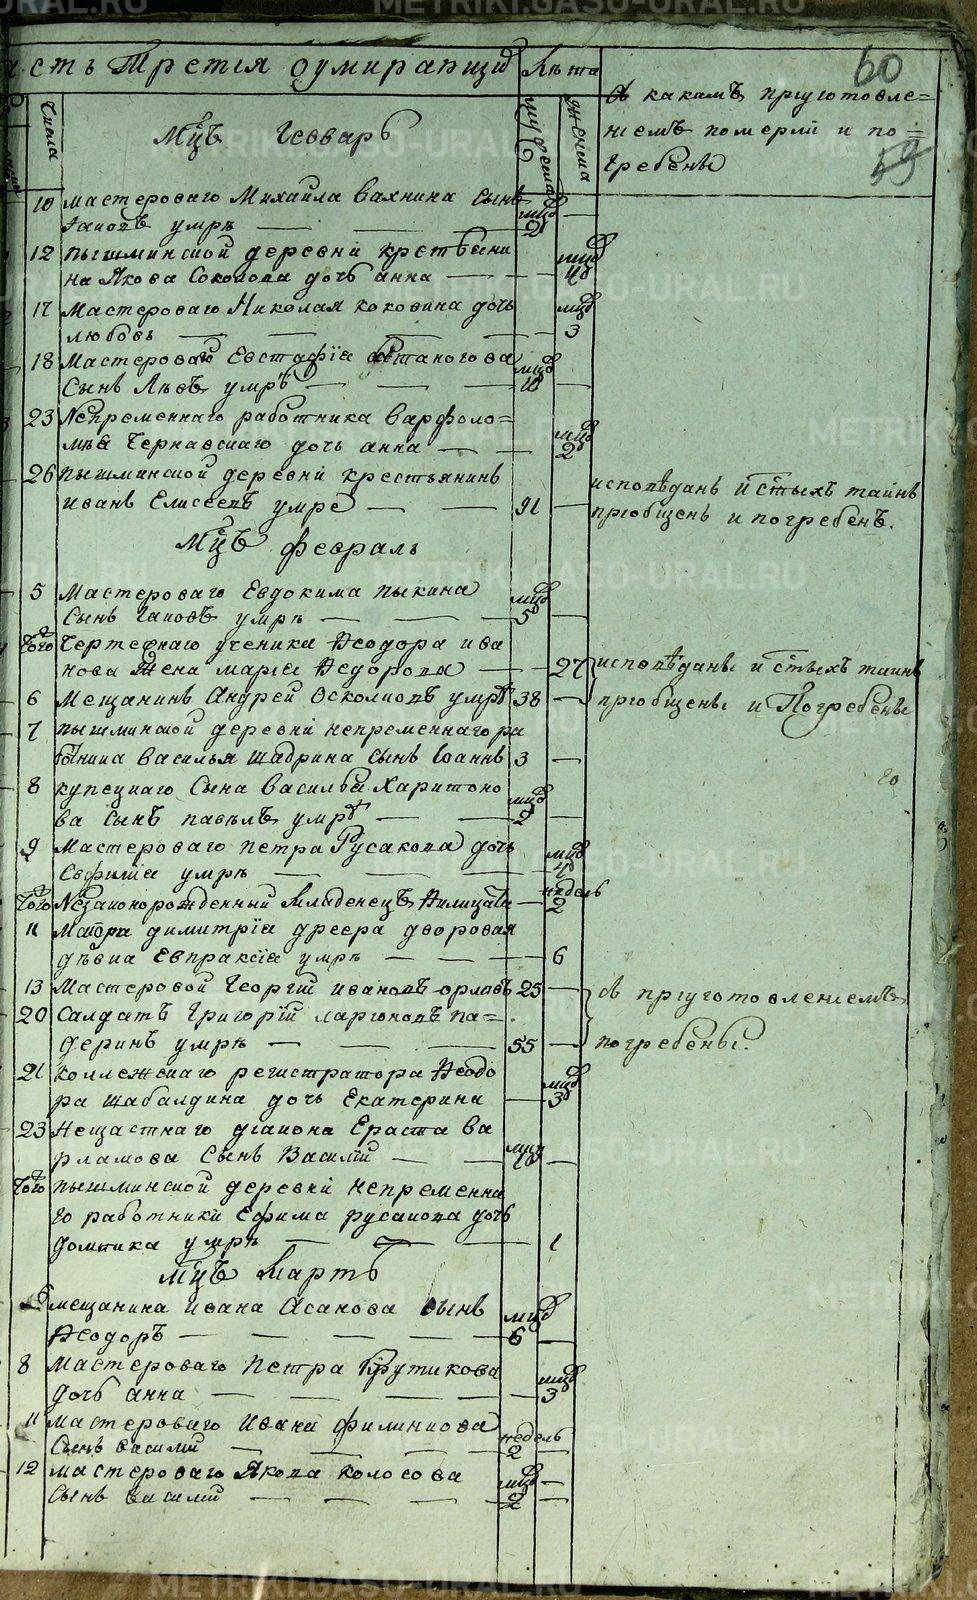 асть Третія о умирающихъ
Лѣта
60
59
Числа
мужеска
женска
Съ какимъ пріуготовле=
ніемъ померли и по=
гребены
Мцъ Генварь
10 мастероваго Михаила Вахнина сынъ
Іаковъ умрѣ — мцъ 2
12 пышминской деревни крестьяни
на Якова Соколова дочь анна — мцъ 4
17 Мастероваго Николая Коковина дочь
любовь — мцъ 3
18 Мастероваго Евстафія
Сынъ Львъ умрѣ — мцъ 10
23 Непременнаго работника Варфоло=
мѣя Чернавскаго дочь анна — мцъ 2
26 пышминской деревни крестьянинъ
иванъ Елисеевъ умре — 91
исповѣданъ и стыхъ таинъ
пріобщенъ и погребенъ.
Мцъ февраль
5 Мастероваго Евдокима пыкина
Сынъ Іаковъ умрѣ — мцъ 5
Того Чертежнаго ученика Ѳеодора ива
нова жена марія Ѳедорова — 27
исповѣданы и стыхъ таинъ
6 Мещанинъ Андрей Осколковъ умрѣ 38 —
пріобщены и Погребены
7 пышминской деревни непременнаго ра
ботника василья шадрина сынъ Іоаннъ 3 —
8 купецкаго Сына василья Харитоно
ва сынъ павелъ умрѣ — мцъ 2
9 Мастероваго петра Русакова дочь
Евфимія умрѣ — мцъ 4
Того Незаконорожденный Младенецъ Филицата — недель 2
11 Маіора димитрія дреера дворовая
дѣвка Евпраксія умрѣ — 6
13 Мастеровой Георгій ивановъ орловъ 25 —
съ пріуготовленіемъ
20 Салдатъ Григорій Ларіоновъ па=
деринъ умрѣ — 55 —
погребены.
21 коллежскаго регистратора Ѳеодо
ра шабалдина дочь Екатерина — мцъ 3
23 Нещастнаго діакона Ераста ва
рламова Сынъ Василій — мцъ 10 —
Того пышминской деревни непременна
го работника Ефима русакова дочь
домника умрѣ — 1
Мцъ Мартъ
5 мещанина ивана Асанова Сынъ
Ѳеодоръ — мцъ 6 —
8 мастероваго Петра Крутикова
дочь анна — мцъ 3
11 мастероваго Ивана филинкова
Сынъ василій — недель 2 —
12 мастероваго Якова колосова
Сынъ василій — мцъ 2 —
METRIKI.GASO-URAL.RU